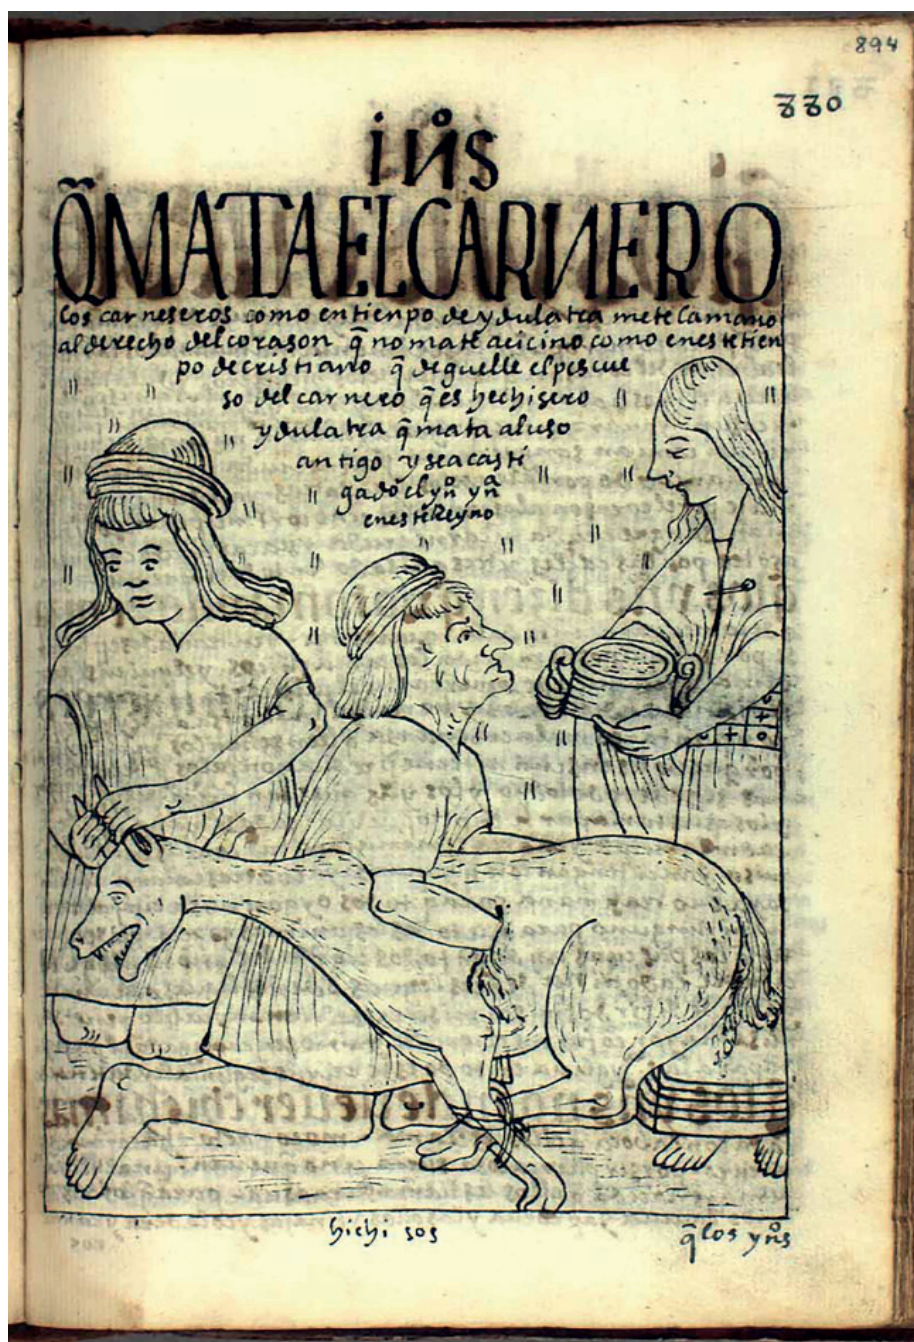 894
880
iños
Q̃ MATA EL CARNERO
los carneseros como en tienpo de ydulatra mete la mano
al derecho del corason q̃ no mate acicino como en este tien
po de cristiano q̃ deguelle el pescue
so del carnero q̃ es hechisero
ydulatra q̃ mata al uso
antigo y sea casti
gado el yño yña
en este rreyno
hichisos
q̃ los yños